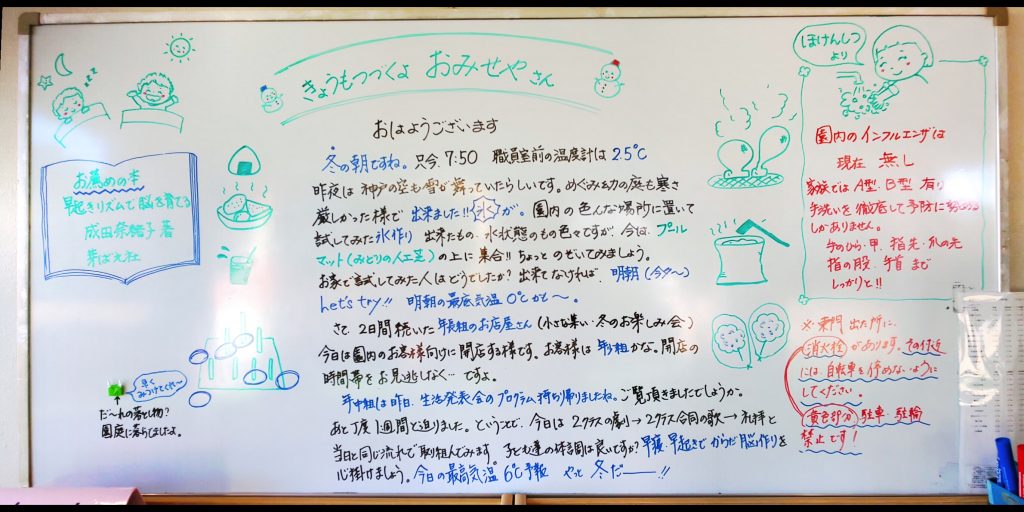 きょうもつづくよ おみせやさん
おはようございます
冬の朝ですね。只今 7:50 職員室前の温度計は 2.5℃
昨夜は神戸の空も雪が舞っていたらしいです。めぐみ幼の庭も寒さ
厳しかった様で 出来ました!! 氷 が。園内の色んな場所に置いて
試してみた氷作り 出来たもの、氷状態のもの色々ですが、今は、プール
マット(みどりの人工芝)の上に集合!! ちょっとのぞいてみましょう。
お家で試してみた人はどうでしたか? 出来てなければ、明朝(今夕〜)
Let's try!! 明朝の最低気温 0℃かも〜。
さて 2日間続いた 年長組のお店屋さん (小さな集い・冬のお楽しみ会)
今日は園内のお客様向けに開店する様です。お客様は 年少組かな。開店の
時間帯をお見逃しなく… ですよ。
年中組は昨日、生活発表会のプログラム持ち帰りましたね。ご覧頂きましたでしょうか。
あと丁度1週間と迫りました。ということで、今日は 2クラスの劇り→2クラス合同の歌→礼拝と
当日と同じ流れで取り組んでみます。子ども達の体調は良いですか? 早寝・早起きで からだ・脳作りを
心掛けましょう。今日の最高気温 6℃予報 やっと 冬だ――!!
お薦めの本
早起きリズムで脳を育てる
成田奈緒子 著
芽ばえ社
早く
みつけてくださ〜い
だ〜れの落とし物?
園庭に落ちてましたよ。
ほけんしつ
より
園内のインフルエンザは
現在 無し
家族では A型、B型 有り
手洗いを徹底して予防に努める
しかありません。
手のひら・甲、指先・爪の先
指の股、手首 まで
しっかりと!!
※東門 出た所に、
消火栓 があります。その付近
には、自転車を停めないように
してください。
黄色部分 駐車・駐輪
禁止です!